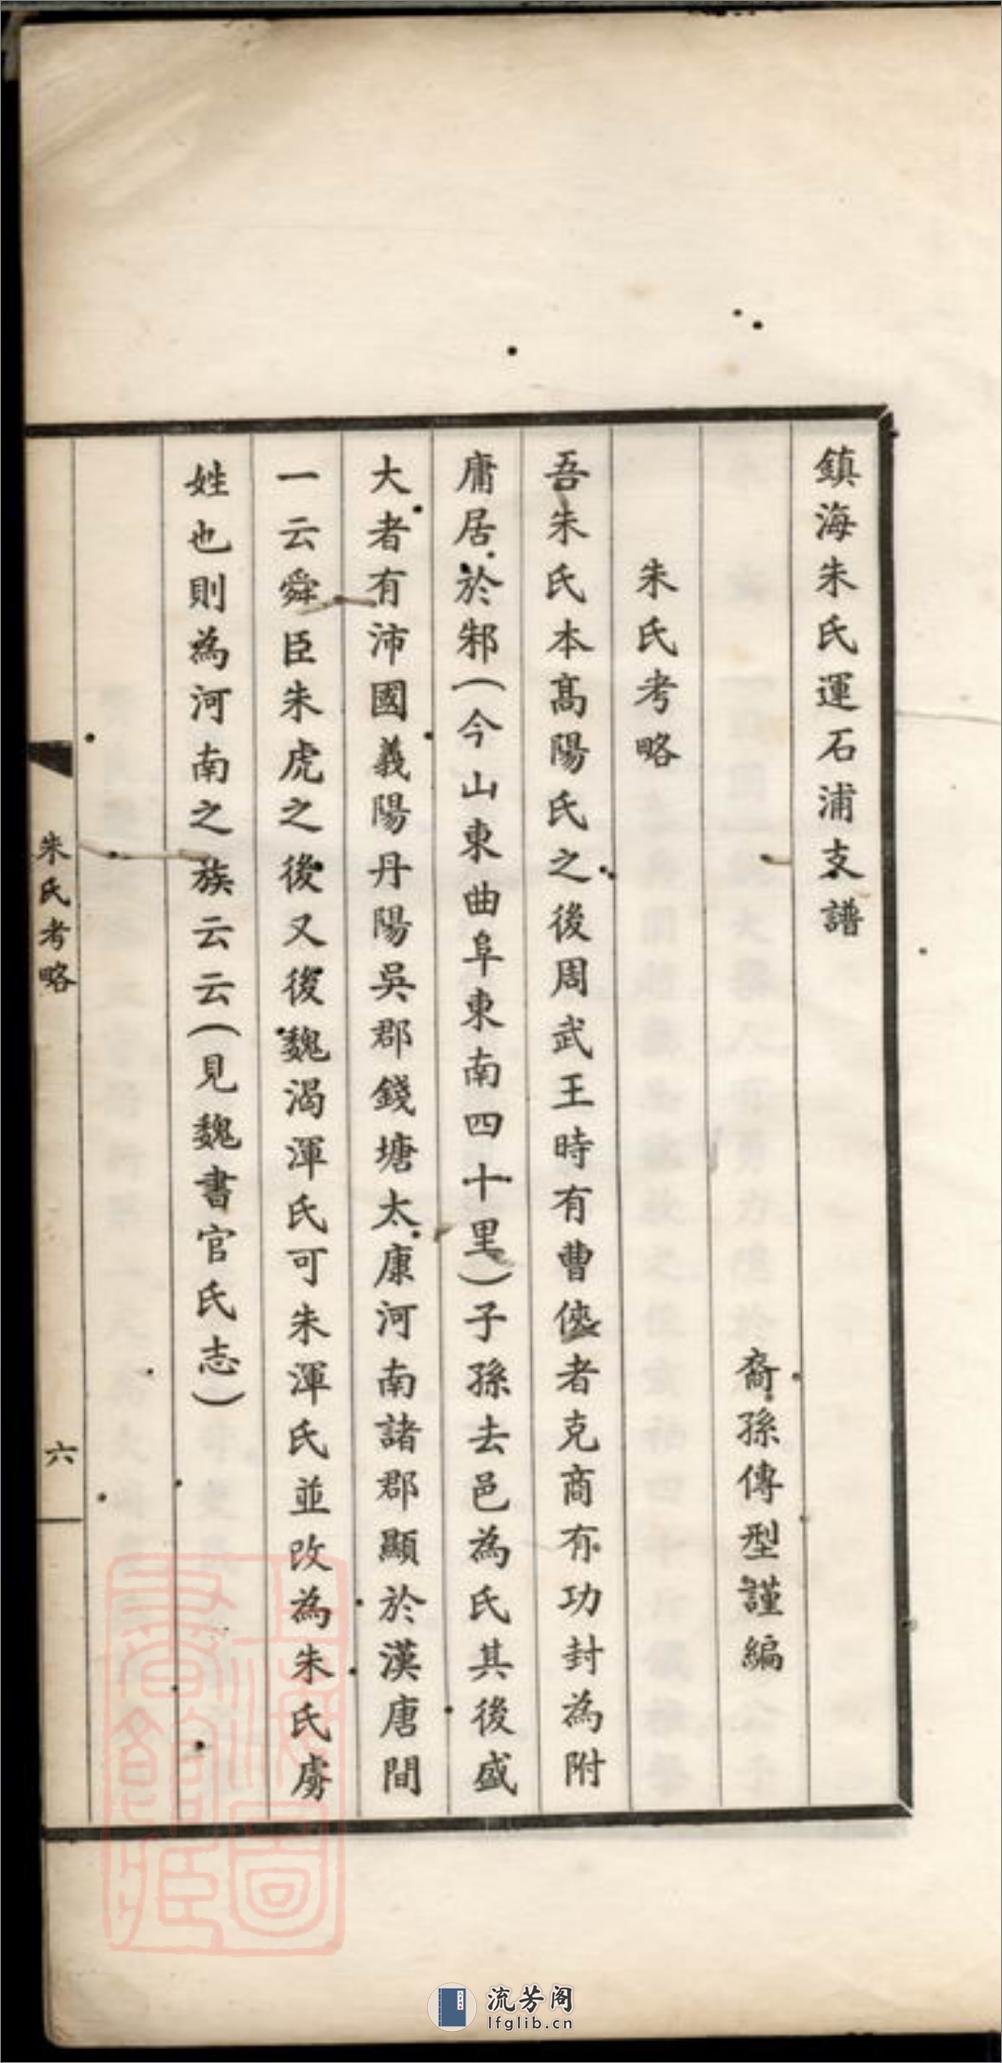 鎮海朱氏運石浦支譜
裔孫傳型謹編
朱氏考略
吾朱氏本髙陽氏之後周武王時有曹俠者克商有功封為附
庸居於邾(今山東曲阜東南四十里)子孫去邑為氏其後盛
大者有沛國義陽丹陽吳郡錢塘太康河南諸郡顯於漢唐間
一云舜臣朱虎之後又後魏渴渾氏可朱渾氏並改為朱氏虜
姓也則為河南之族云云(見魏書官氏志)
朱氏考略
六
上海圖書館藏
流芳阁
lfglib.cn